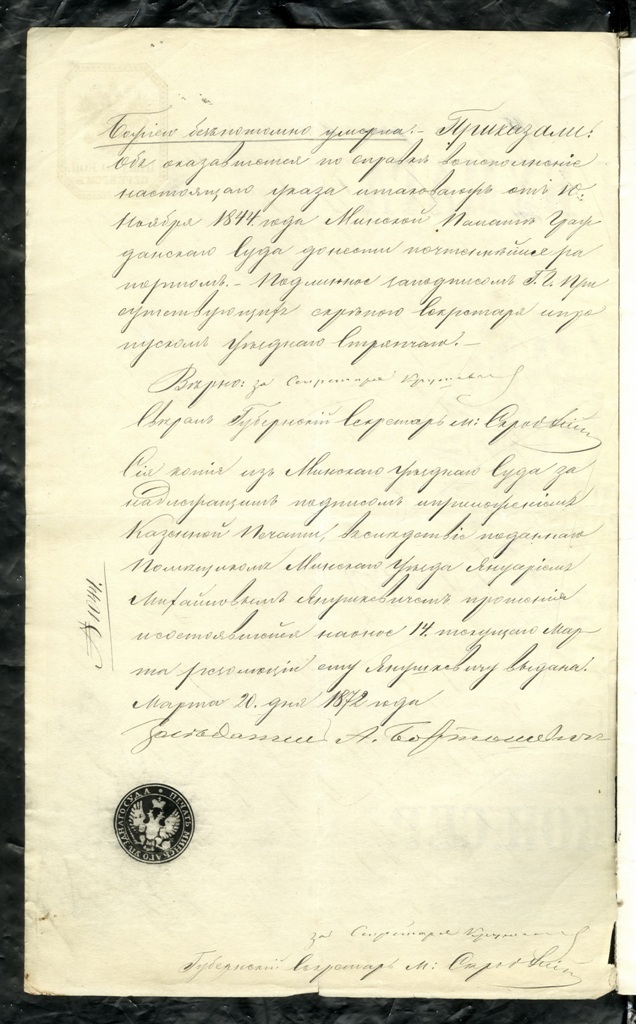 Софiею безпотомно умерла. — Приказали:
Объ оказавшемся по справкѣ воисполненiе
настоящаго указа итаковагожъ отъ 10.
Ноября 1844. года Минской Палатѣ Граж
данскаго Суда донести почтеннѣйше ра
портомъ. — Подлинное заподписомъ Г. Г. При
сутствующихъ скрѣпою Секретаря ипро
пускомъ Уѣзднаго Стряпчаго. —
Вѣрно: за Секретаря
Свѣрялъ Губернскiй Секретарь М:
Сiя копiя изъ Минскаго Уѣзднаго Суда за
надлежащимъ подписомъ иприложенiемъ
Казенной Печати, вслѣдствiе поданнаго
Помѣщикомъ Минскаго Уѣзда Януарiемъ
Михайловымъ Янушкевичемъ прошенiя
исостоявшейся наоное 14. текущаго Мар-
та резолюцiи ему Янушкевичу выдана.
Марта 20. дня 1872 года
№ 1144.
Засѣдатель А. Бортошевичъ
ПЕЧАТЬ МИНСКАГО УѢЗДНАГО СУДА
за Секретаря
Губернскiй Секретарь М: